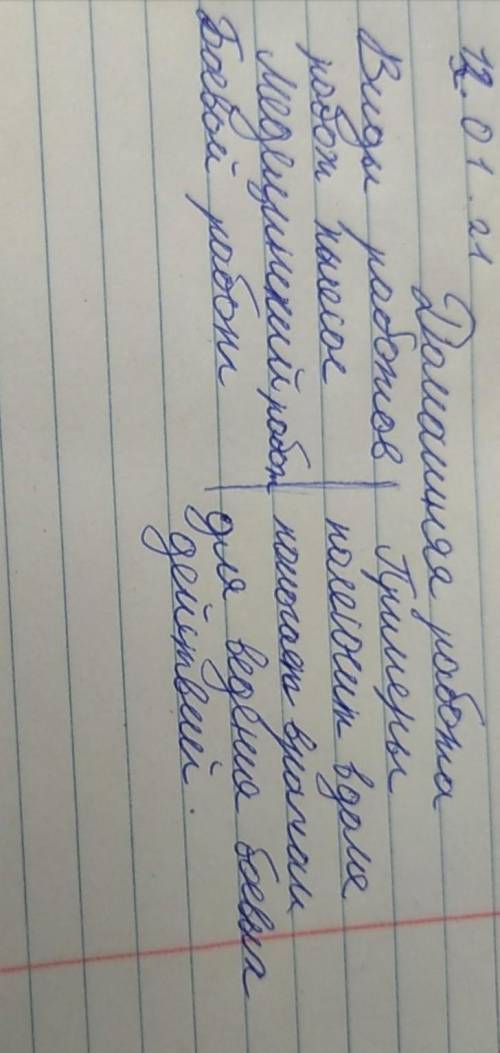 12.01.21
Домашняя работа
Виды роботов | Примеры
робот пылесос | пылесосит в доме
Медицинский робот | помогает врачам
Боевой роботы | для ведения боевых
действий.